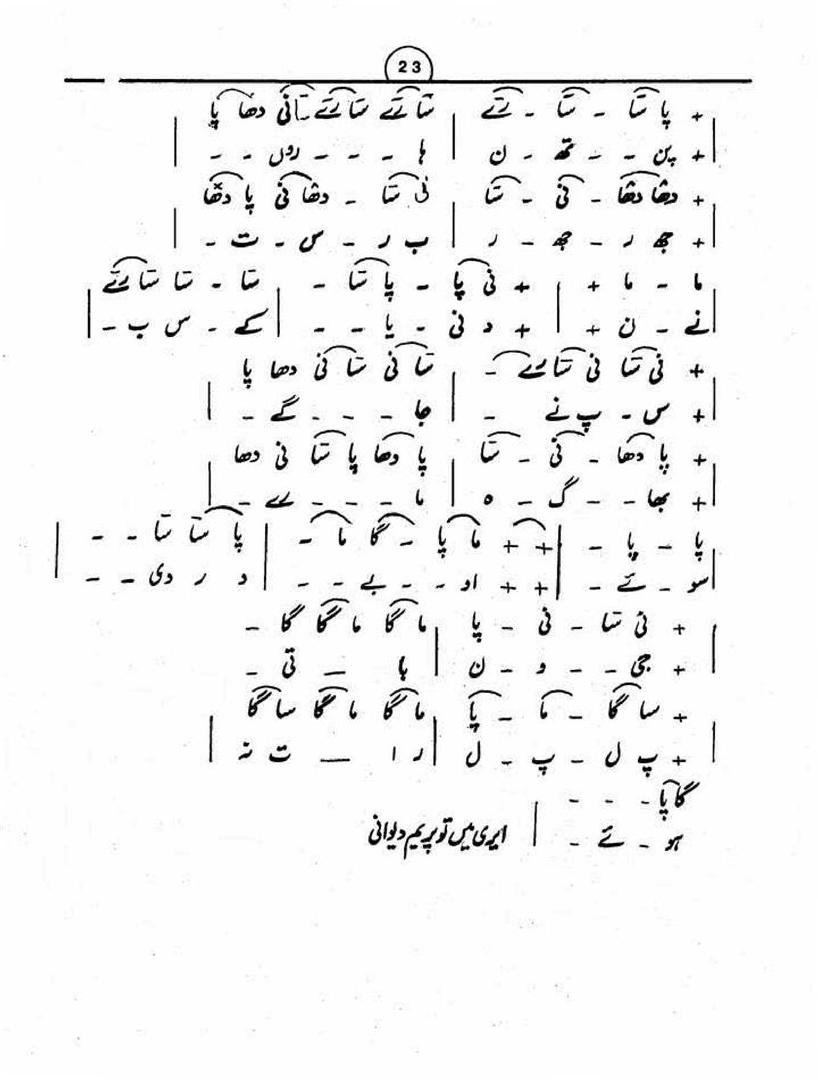 23
+ پا سَا - سَا - رےَ | سَا رےَ سَا رےَ سَا نی دھا پا
+ پن - - تھ - ن | ہا - - - روں - -
+ دھا دھا - نی - سَا | نی سَا - دھا نی پا دھا
+ جھ ر - جھ - ر | ب ر - س - ت -
ما - ما + | + نی پا - پا سَا - | سَا - سَا سَا رےَ
نے - ن + | + د نی - یا - - | کے - س ب -
+ نی سَا نی سَا رے - | سَا نی سَا نی دھا پا
+ س - پ نے - | جا - - - گے -
+ پا دھا - نی - سَا | پا دھا پا سَا نی دھا
+ بھا - - گ - ہ | ما - - - رے -
پا - پا - | + + ما پا - گا ما - | پا سَا سَا - -
سو - ئے - | + + او - - بے - - | د ر دی - -
+ نی سَا - نی - پا | ما گا ما گا گا -
+ جی - - و - ن | با — تی -
+ سا گا - ما - پا | ما گا ما گا سا گا
+ پ ل - پ - ل | را — ت نہ
گا پا - - -
ہو - ئے - | ایری میں تو پریم دیوانی